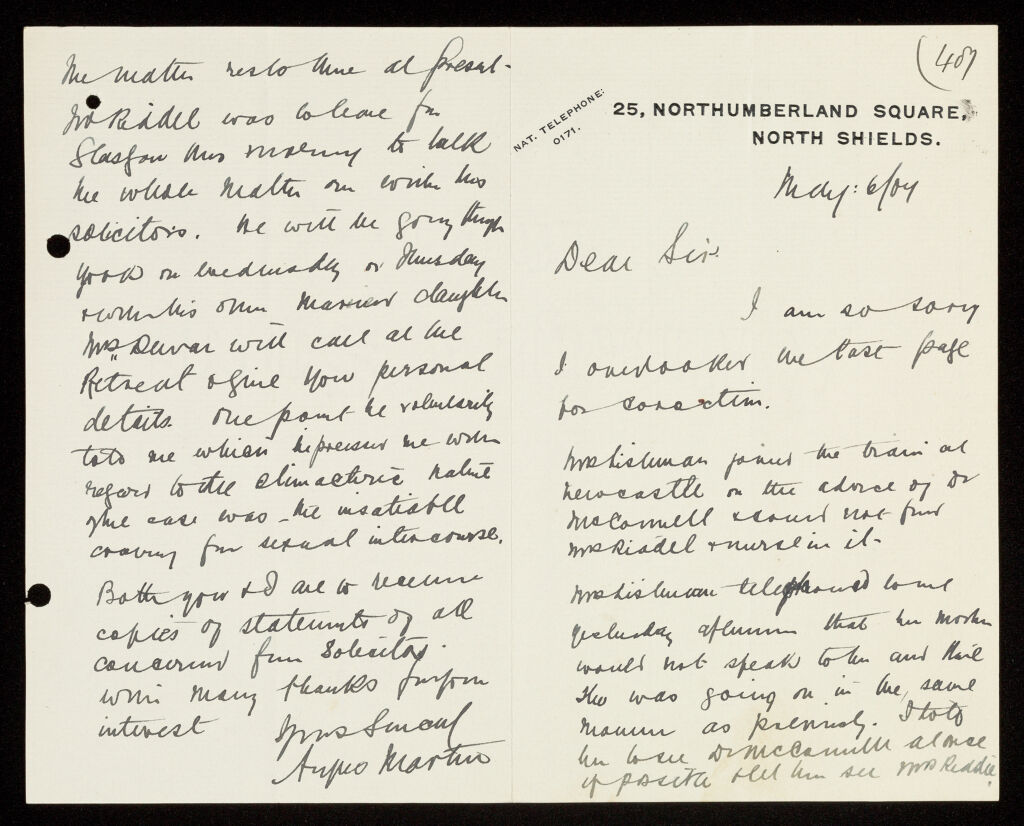 (401
NAT. TELEPHONE:
0171.
25, NORTHUMBERLAND SQUARE,
NORTH SHIELDS.
May: 6/04
Dear Sir.
I am so sorry
I overlooked the last page
for correction.
Mrs Lishman joined the train at
Newcastle on the advice of Dr
McConnell & could not find
Mrs Riddel & nurse in it -
Mrs Lishman telephoned to me
yesterday afternoon that her mother
would not speak to her and that
she was going on in the same
manner as previously. I told
her to see Dr McConnell at once
if possible & let him see Mrs Riddle.
The matter rests there at present -
Riddel was to leave for
Glasgow this morning to talk
the whole matter over with his
solicitors. He will be going through
York on Wednesday or Thursday
& with his own married daughter
Mrs Dewar will call at the
Retreat & give you personal
details. One point he voluntarily
told me which impressed me with
regard to the climacteric nature
of the case was - the insatiable
craving for sexual intercourse.
Both you & I are to receive
copies of statements of all
concerned from Solicitors.
With many thanks for your
interest
Yours Sincerely
Martin